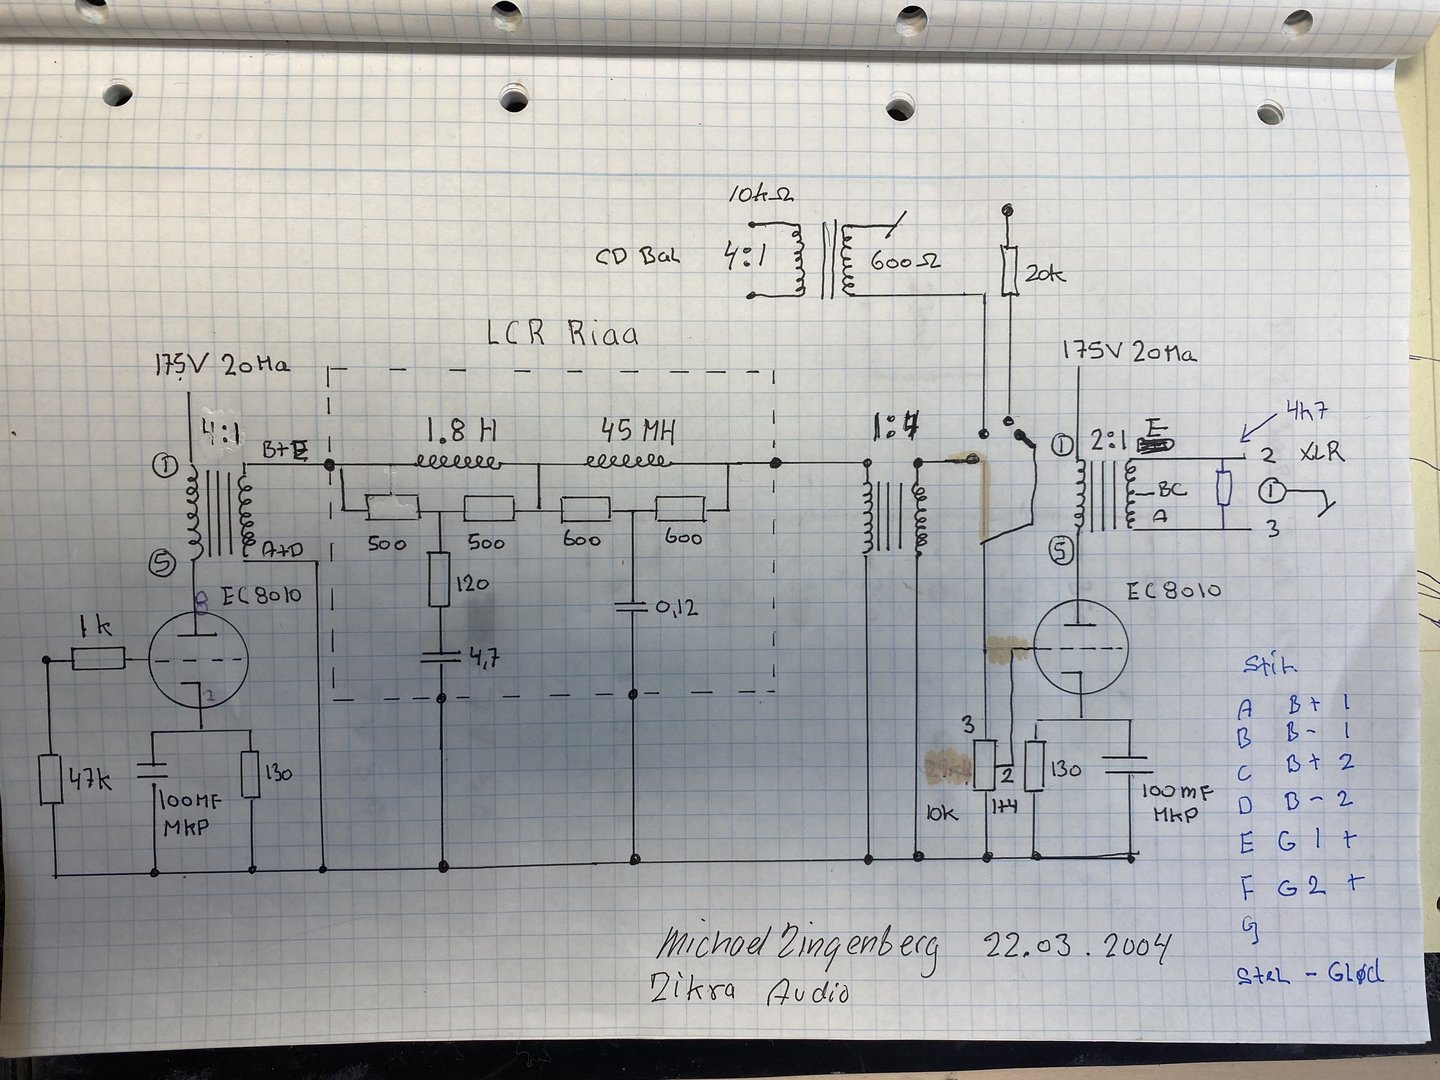 10kΩ
CD Bal 4:1 600Ω
20k
LCR Riaa
175V 20Ma
175V 20Ma
4:1
B+E
1.8 H 45 MH
1:4
4k7
2:1 E
2 XLR
1
BC
A
3
1
5
1
5
500 500 600 600
A+D
EC8010
EC8010
8
1k
120
0,12
4,7
2
47k
100MF
MKP
130
3
2
10k
130
100mF
MKP
Stik
A B+ 1
B B- 1
C B+ 2
D B- 2
E G 1 +
F G 2 +
G
Stel - Glød
Michael Zingenberg 22.03.2004
Zikra Audio